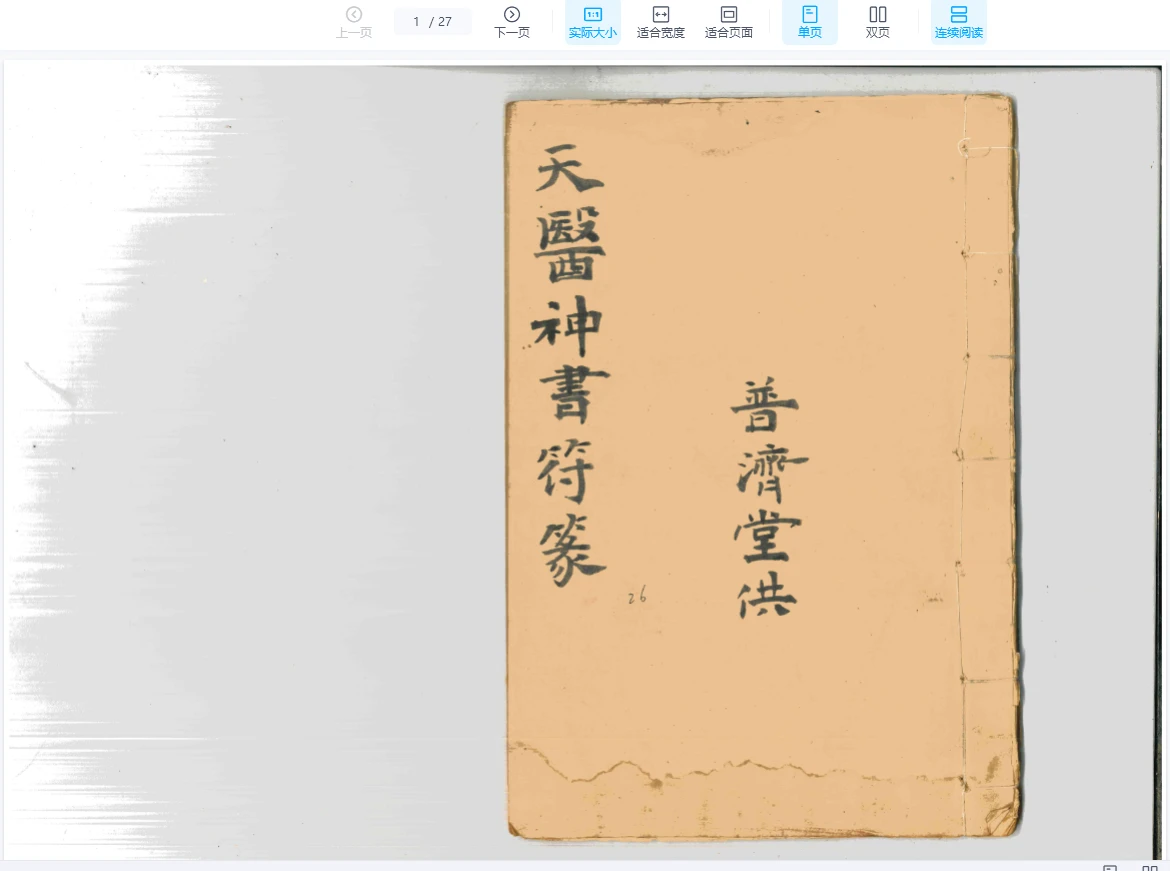 上一页
1 / 27
下一页
实际大小
适合宽度
适合页面
单页
双页
连续阅读
普濟堂供
天醫神書符篆
26